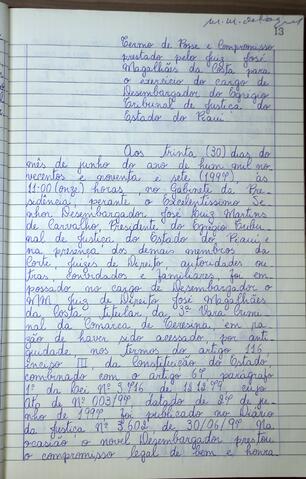 13
Termo de Posse e Compromisso
prestado pelo Juiz José
Magalhães da Costa para
o exercício do cargo de
Desembargador do Egrégio
Tribunal de Justiça do
Estado do Piauí.
Aos trinta (30) dias do
mês de junho do ano de hum mil no
vecentos e noventa e sete (1997) às
11:00 (onze) horas, no Gabinete da Pre-
sidência, perante o Excelentíssimo Se
nhor Desembargador José Luiz Martins
de Carvalho, Presidente do Egrégio Tribu-
nal de Justiça do Estado do Piauí, e
na presença dos demais membros da
Corte, Juízes de Direito, autoridades ou
tras, convidados e familiares, foi em-
possado no cargo de Desembargador o
MM. Juiz de Direito José Magalhães
da Costa, titular da 3ª Vara Crimi
nal da Comarca de Teresina, em ra-
zão de haver sido acessado, por anti-
guidade, nos termos do artigo 116,
inciso III, da Constituição do Estado,
combinado com o artigo 67, parágrafo
1º da Lei Nº 3.716 de 12.12.79, cujo
Ato de Nº 003/97, datado de 27 de ju-
nho de 1997 foi publicado no Diário
da Justiça Nº 3.602, de 30/06/97. Na
ocasião, o novel Desembargador prestou
o compromisso legal de bem e honra